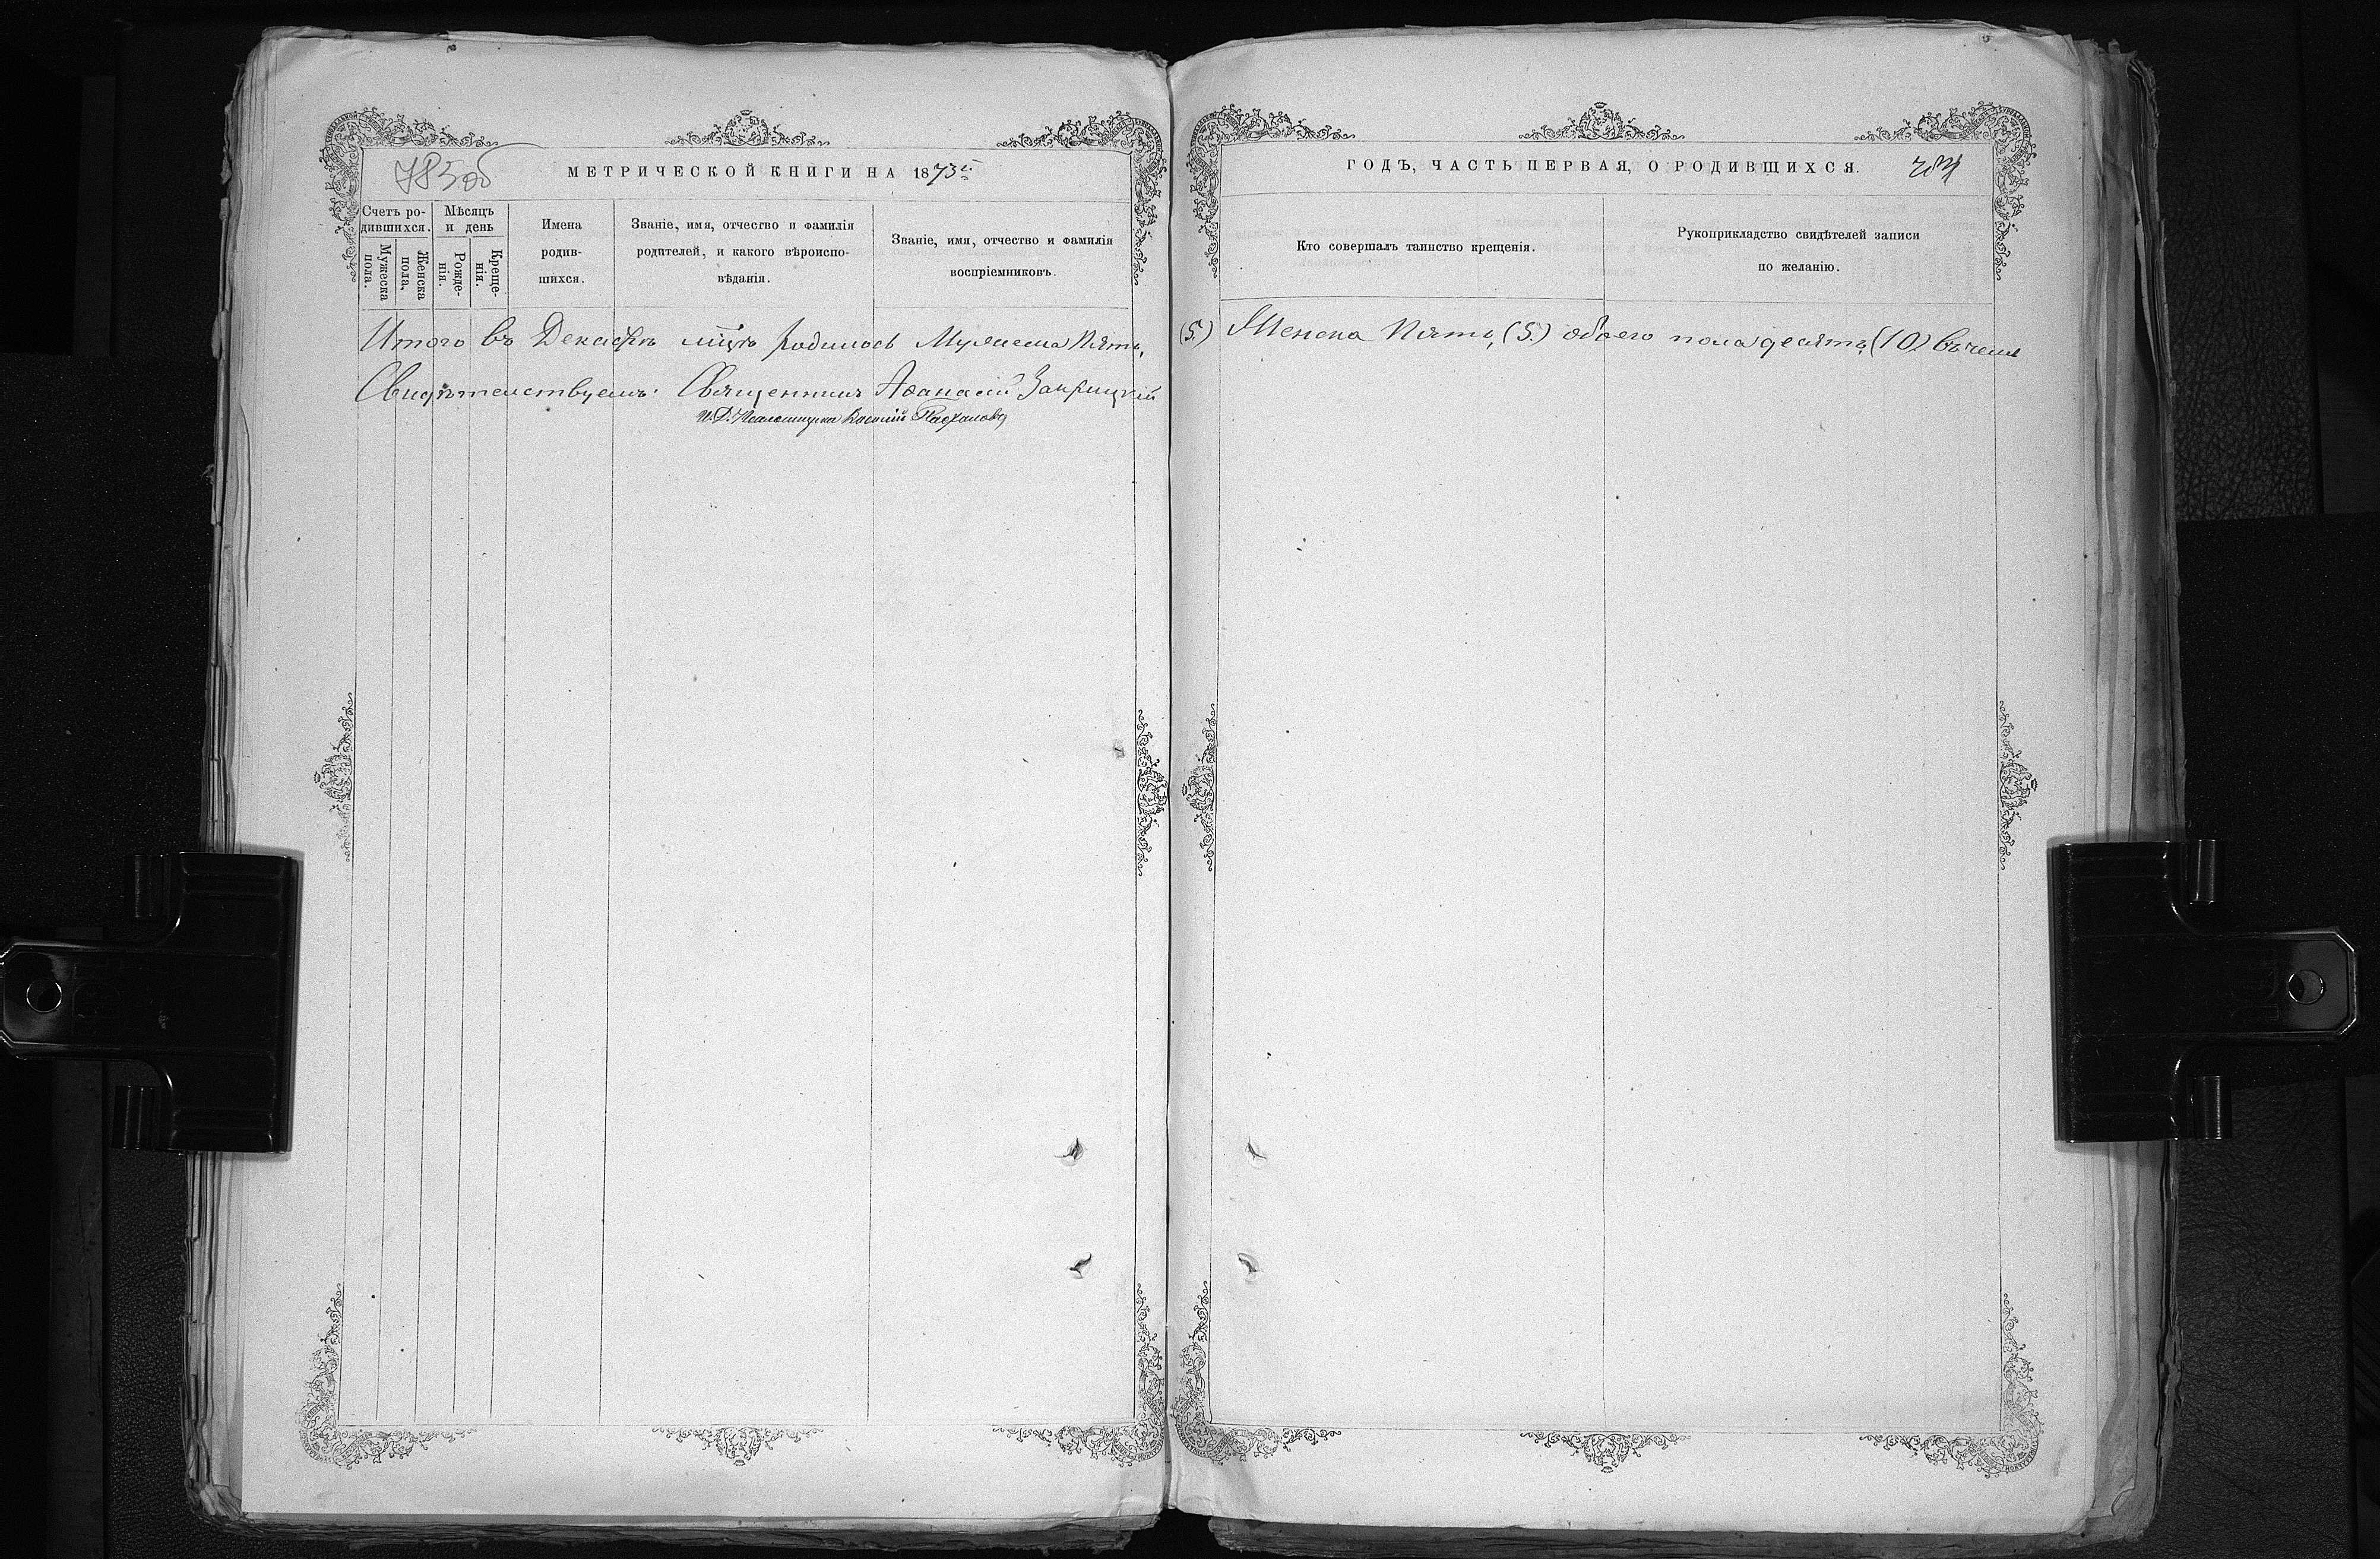 785об
МЕТРИЧЕСКОЙ КНИГИ НА 1873й
Счетъ ро-
дившихся.
Мужеска
пола.
Женска
пола.
Мѣсяцъ
и день
Рожде-
нія.
Креще-
нія.
Имена
родив-
шихся.
Званіе, имя, отчество и фамилія
родителей, и какого вѣроиспо-
вѣданія.
Званіе, имя, отчество и фамилія
воспріемниковъ.
Итого въ Декабрѣ м͠цѣ родилось Мужеска Пять,
Свидѣтельствуемъ: Священникъ Аѳанасій Закрицкій
И. Д. Псаломщика Василій
ГОДЪ, ЧАСТЬ ПЕРВАЯ, О РОДИВШИХСЯ.
Кто совершалъ таинство крещенія.
Рукоприкладство свидѣтелей записи
по желанію.
(5.) Женска Пять, (5.) обоего пола десять, (10)